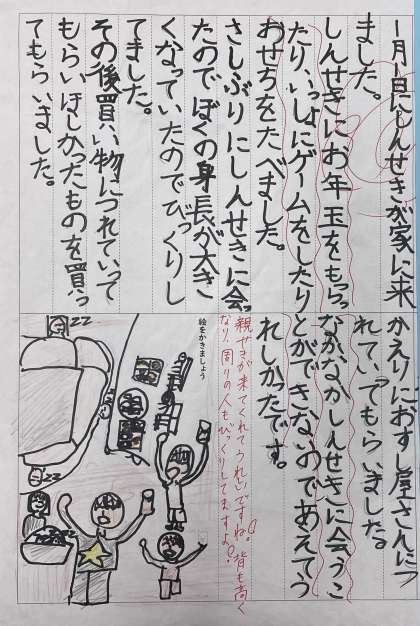 1月1日にしんせきが家に来
ました。
しんせきにお年玉をもらっ
たり、いっしょにゲームをしたり
おせちをたべました。
さしぶりにしんせきに会っ
たのでぼくの身長が大き
くなっていたのでびっくりし
てました。
その後買い物につれていって
もらいほしかったものを買っ
てもらいました。
かえりにおすし屋さんにつ
れていってもらいました。
なかなかしんせきに会うこ
とができないのであえてう
れしかったです。
親せきが来てくれてうれしいですね。背も高く
なり、周りの人もびっくりしてますよ!
絵をかきましょう
zz
zz